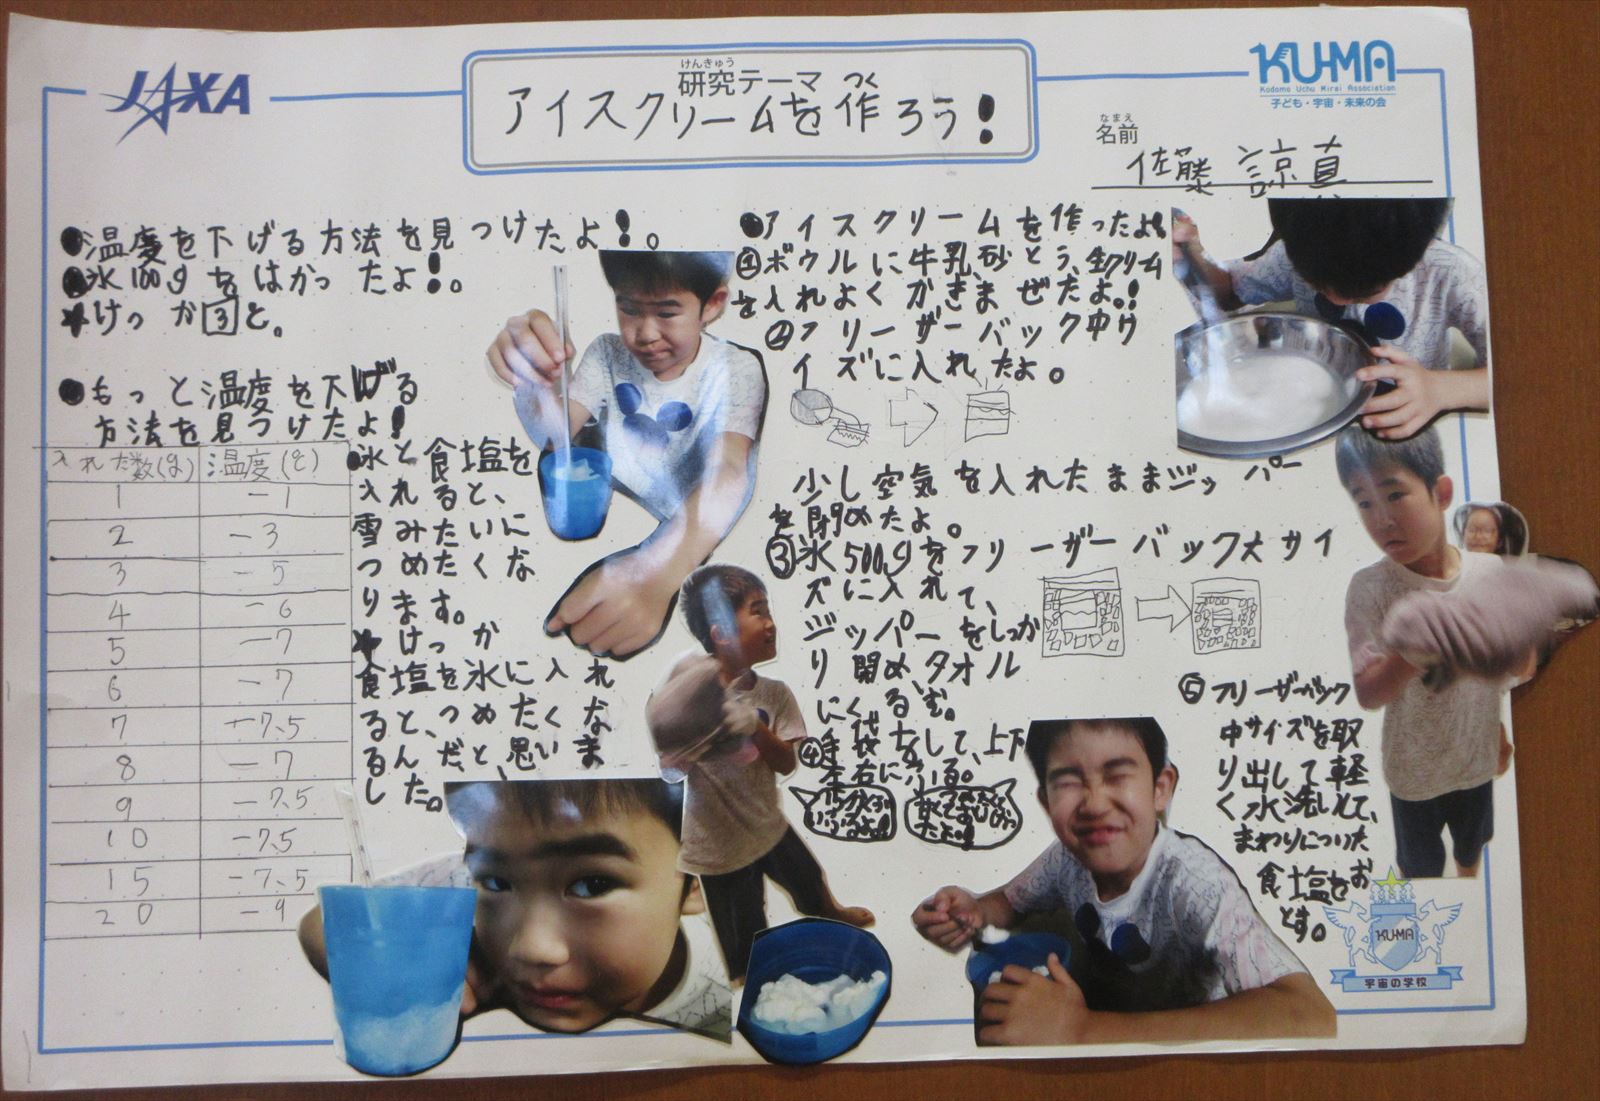 JAXA
けんきゅう
研究テーマ
つく
アイスクリームを作ろう!
KU-MA
Kodomo Uchu Mirai Association
子ども・宇宙・未来の会
なまえ
名前
佐藤 諒真
●温度を下げる方法を見つけたよ!。
●氷100gをはかったよ!。
★けっか③と。
●もっと温度を下げる
方法を見つけたよ!
入れた数(g) 温度(℃)
1 -1
2 -3
3 -5
4 -6
5 -7
6 -7
7 -7.5
8 -7
9 -7.5
10 -7.5
15 -7.5
20 -9
●氷と食塩を
入れると、
雪みたいに
つめたくな
ります。
★けっか
食塩を氷に入れ
ると、つめたくな
るんだと、思いま
した。
●アイスクリームを作ったよ!
①ボウルに牛乳、砂とう、生クリーム
を入れよくかきまぜたよ。!
②フリーザーバック中サ
イズに入れたよ。
少し空気を入れたままジッパー
を閉めたよ。
③氷500gをフリーザーバック大サイ
ズに入れて、
ジッパーをしっか
り閉め、タオル
にくるむ。
④手袋をして、上下
左右にふる。
⑤フリーザーバック
中サイズを取
り出して軽
く水洗いして、
まわりについた
食塩をお
とす。
KU-MA
宇宙の学校